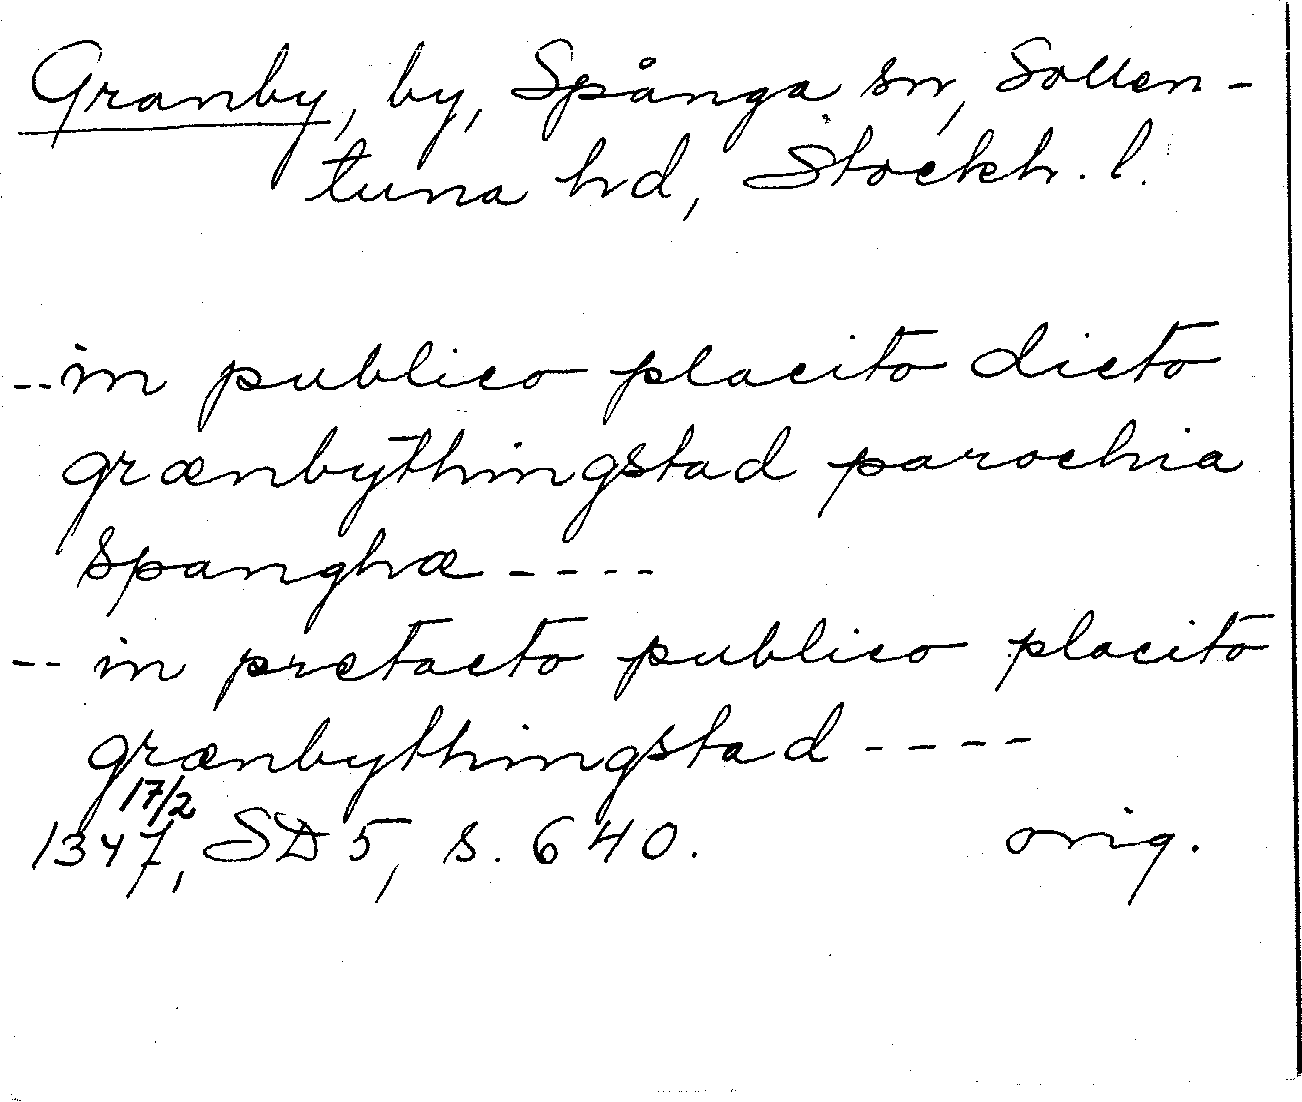 Granby, by, Spånga sn, Sollen-
tuna hd, Stockh. l.
-- in publico placito dicto
grænbythingstad parochia
spanghæ ----
-- in pretacto publico placito
grænbythingstad ----
17/2
1347, SD 5, s. 640. orig.